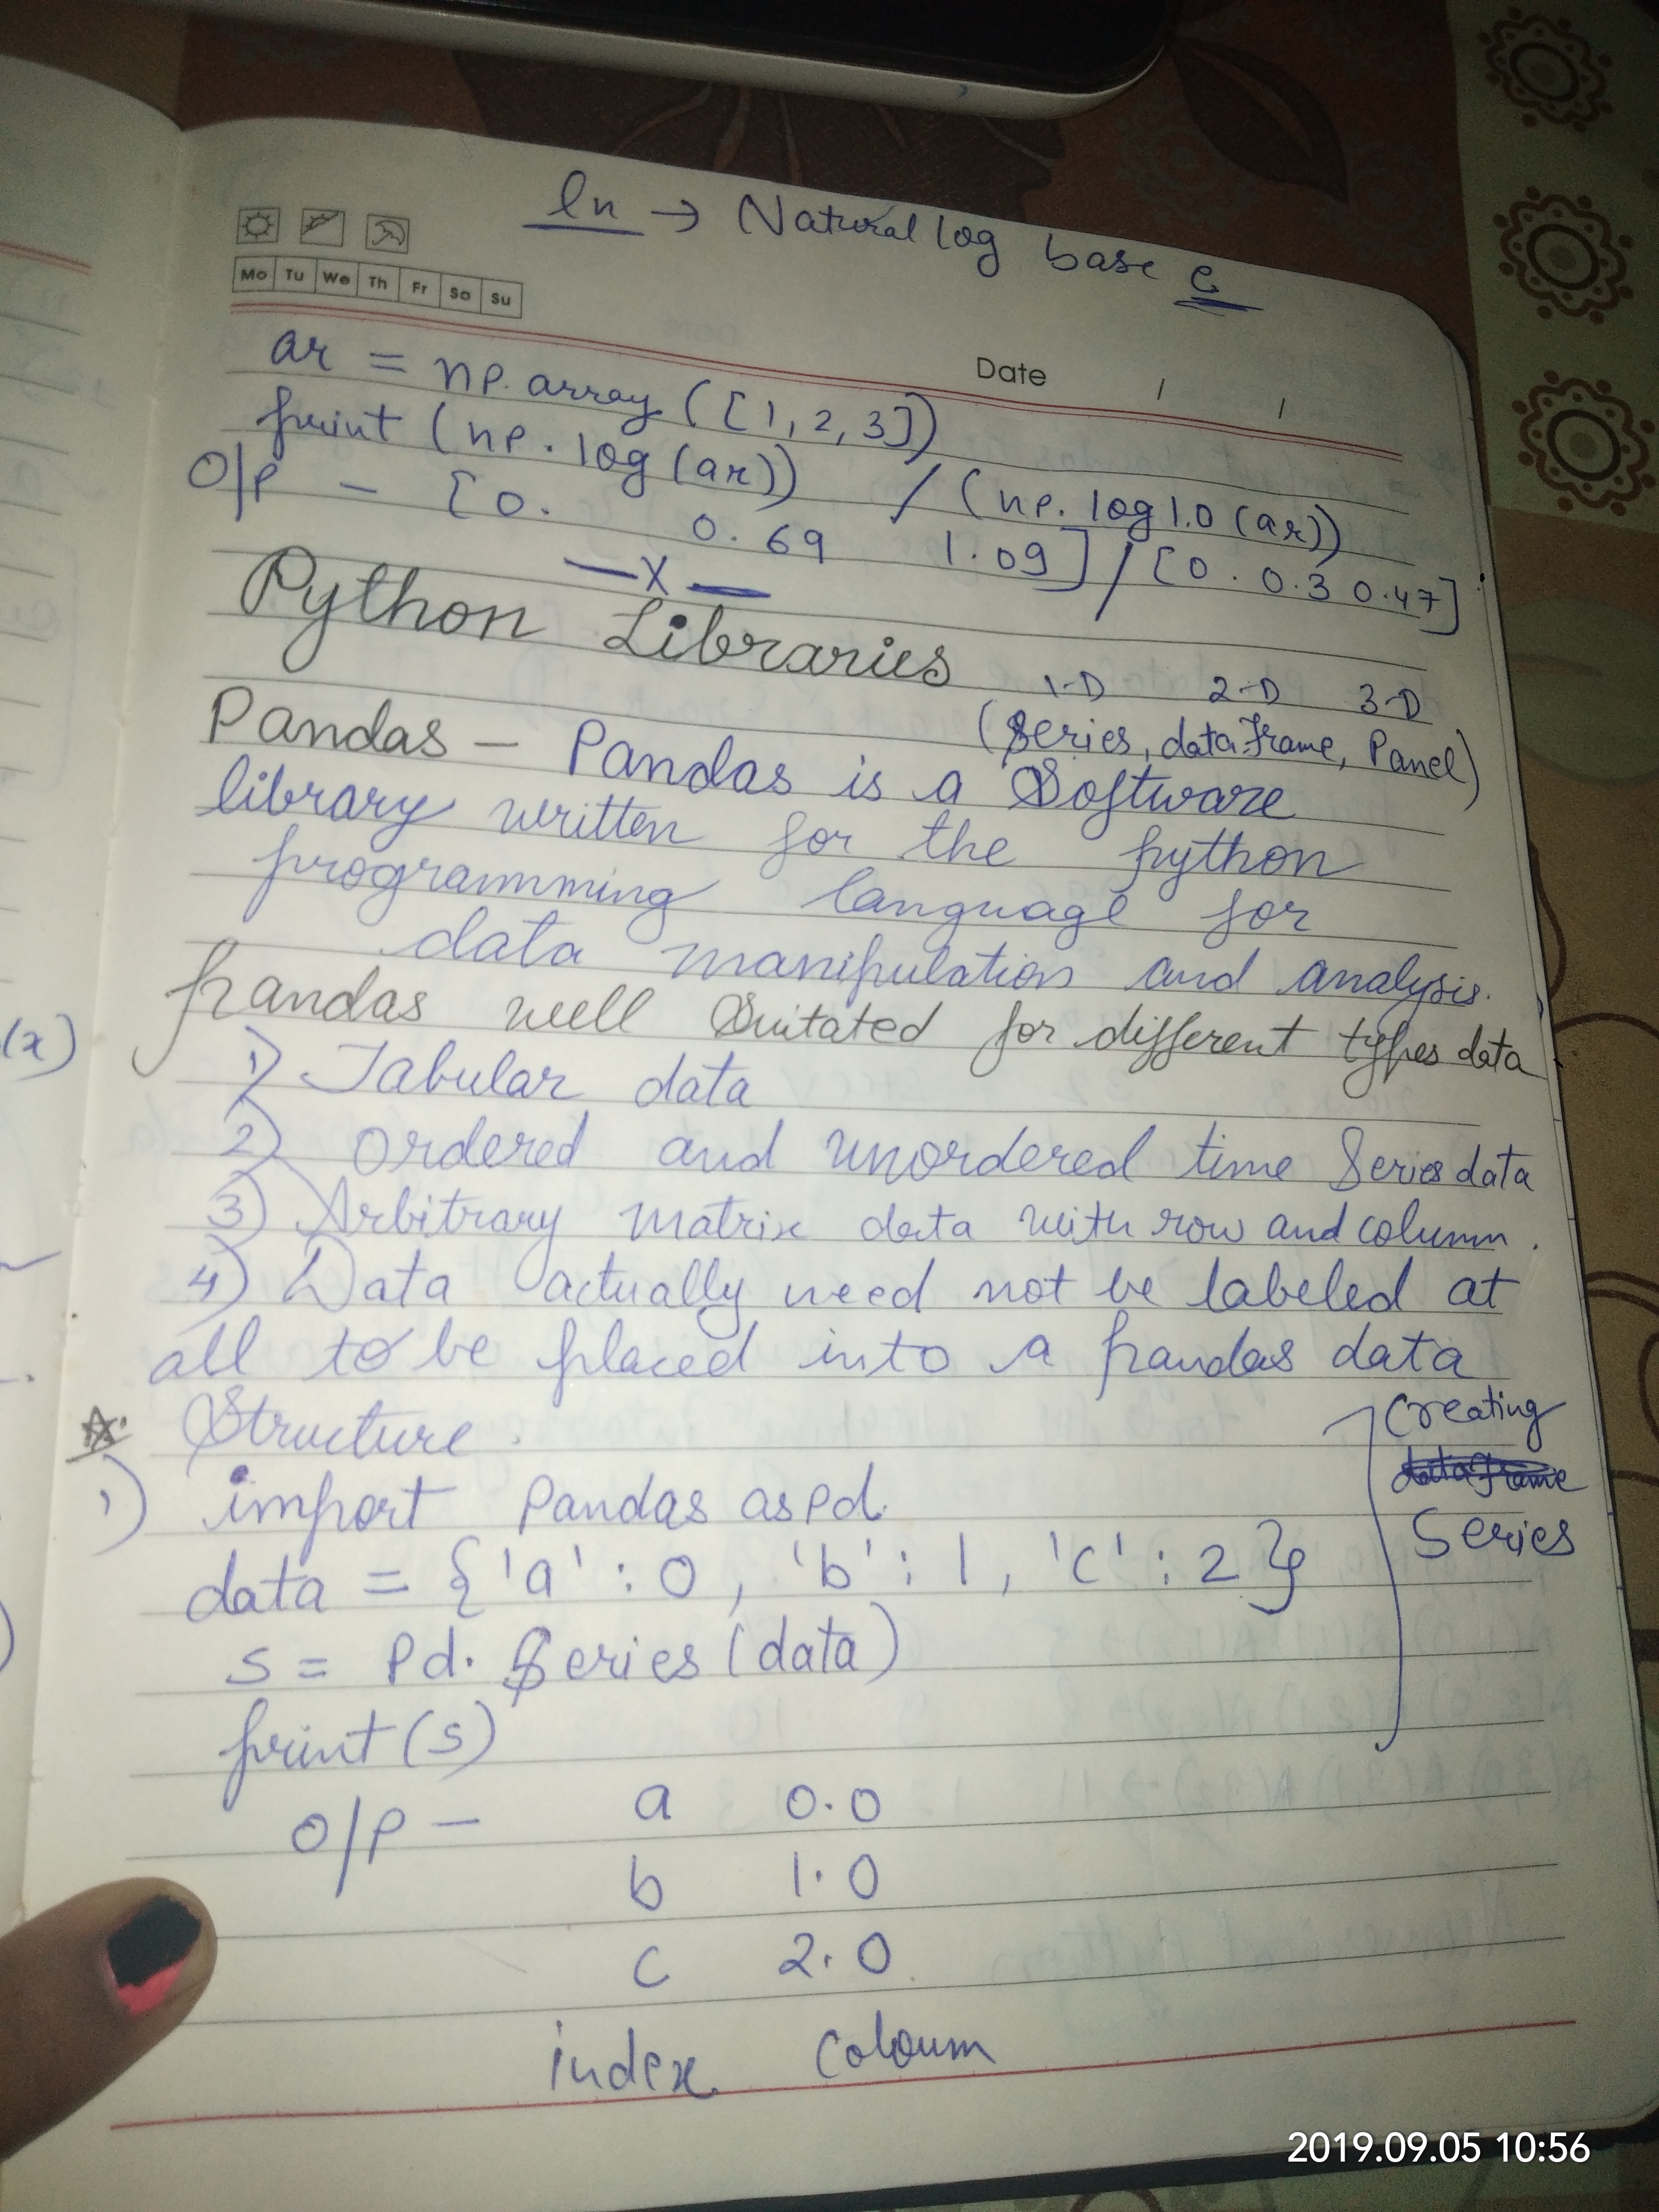 ln → Natural log base e
Mo Tu We Th Fr Sa Su
Date / /
ar = np.array ([1, 2, 3])
print (np.log(ar)) / (np.log1.0(ar))
O/P - [0. 0.69 1.09] / [0. 0.3 0.47]
—x—
Python Libraries
1-D 2-D 3-D
(Series, data frame, Panel)
Pandas - Pandas is a Software
library written for the python
programming language for
data manipulation and analysis.
pandas well Suitated for different types data
1) Tabular data
2) Ordered and unordered time Series data
3) Arbitrary matrix data with row and column.
4) Data actually need not be labeled at
all to be placed into a pandas data
Structure.
Creating
dataframe
Series
1) import Pandas as Pd.
data = {'a' : 0, 'b' : 1, 'c' : 2}
s = Pd. Series (data)
print (s)
O/P - a 0.0
b 1.0
c 2.0
index Coloum
(x)
2019.09.05 10:56